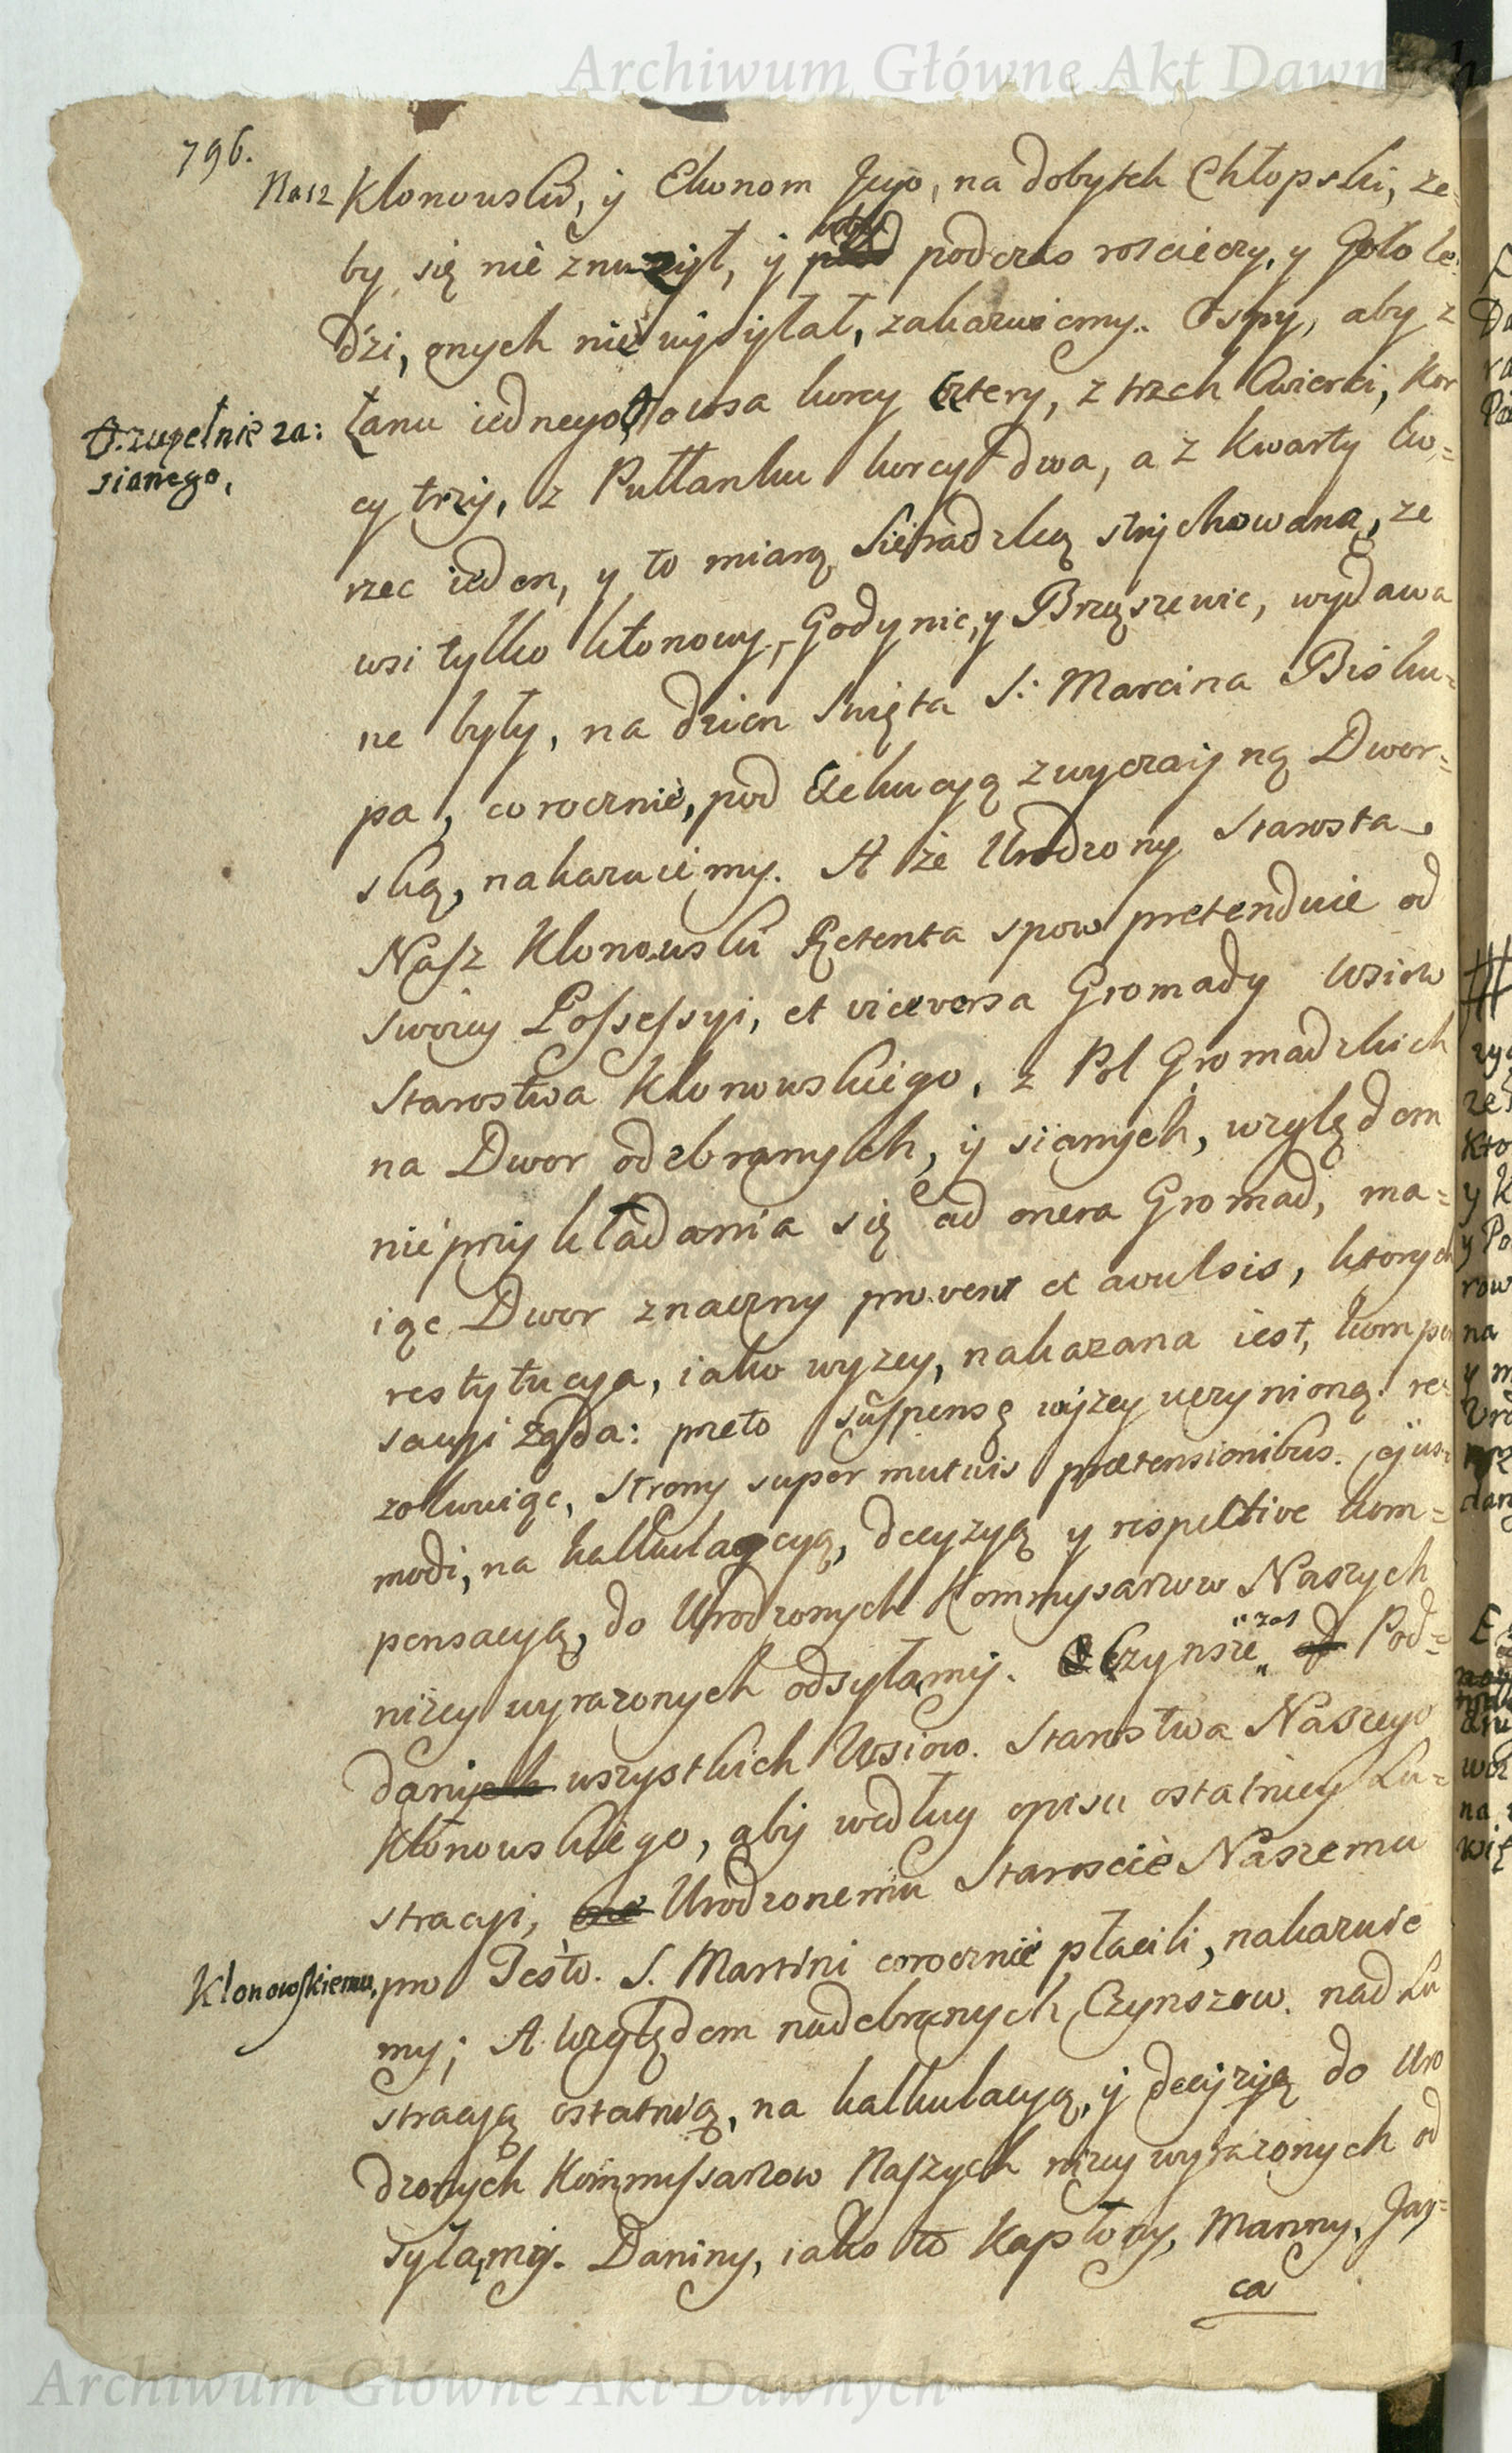 Archiwum Główne Akt Dawnych
796.
Nasz Klonowski, y Ekonom Jego, na dobytek Chłopski, że=
by się nie znużył, y podczas roscieczy, y Goło le=
dzi, onych nie wysyłał, zakazuiemy. Ospy, aby z
Łanu iednego owsa korcy cztery, z trzech Cwierci, Kor
O. zupełnie za:
sianego,
cy trzy, z Pułłanku korcy dwa, a z Kwarty ko=
rzec ieden, y to miarą Sieradzką strychowaną, ze
wsi tylko Kłonowy, Godynic, y Brząszewic, wydawa
ne były, na dzien Swięta S: Marcina Bisku=
pa, corocznie, pod Exekucyą zwyczayną Dwor=
ską, nakazuiemy. A że Urodzony Starosta
Nasz Klonowski Retenta spow pretenduie od
swoiey Possessyi, et viceversa Gromady wsiow
Starostwa Klonowskiego, z Pol Gromadzkich
na Dwor odebranych, y sianych, względem
nieprzykładania się ad onera Gromad, ma=
iąc Dwor znaczny provent ex avulsis, ktorych
restytucya, iako wyzey, nakazana iest, kompen
sacyi żąda: preto suspensę wyzey uczynioną re=
zolwuiąc, strony super mutuis praetensionibus ejus=
modi, na kalkulacyą, decyzyą y respective kom=
pensacyą, do Urodzonych Kommysarzow Naszych
niżey wyrazonych odsyłamy. Czynsze „zas„ Pod=
dani wszystkich Wsiow Starostwa Naszego
Kłonowskiego, aby według opisu ostatniey Lu=
stracyi, Urodzonemu Staroscie Naszemu
Klonowskiemu, pro Festo S. Martini corocznie płacili, nakazuie
my; A względem nadebranych Czynszow nad Lu
stracyą ostatnią, na kalkulacyą, y decyzyą do Uro
dzonych Kommissarzow Naszych nizey wyrazonych od
syłamy. Daniny, iako to Kapłony, Manny, Jay=
ca
Archiwum Główne Akt Dawnych